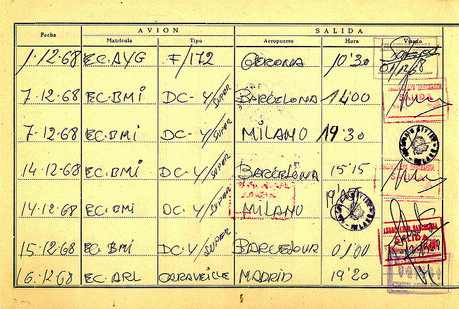 AVION SALIDA
Fecha Matrícula Tipo Aeropuerto Hora Visado
1-12-68 EC-AYG F/172 GERONA 10'30
7-12-68 EC-BMI DC-4/SUPER BARCELONA 14'00
7-12-68 EC-BMI DC-4/SUPER MILANO 19'30
14-12-68 EC-BMI DC-4/SUPER BARCELONA 15'15
14-12-68 EC-BMI DC-4/SUPER MILANO
15-12-68 EC-BMI DC-4/SUPER BARCELONA 01'00
SALIDA
16-12-68 EC-ARL CARAVELLE MADRID 19'20